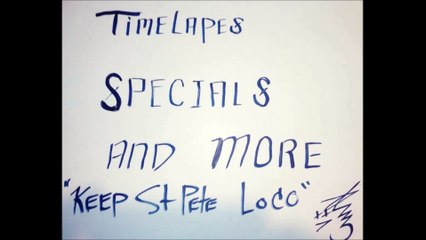 TIMELAPES
SPECIALS
AND MORE
"KEEP St PETE LOCO"